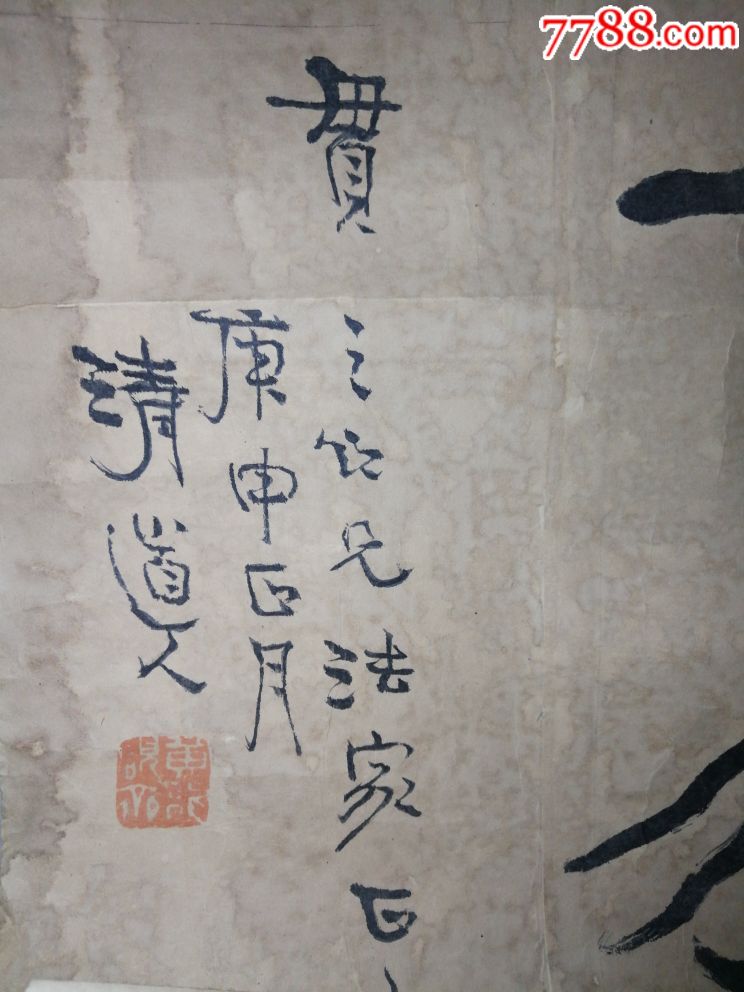 7788.com
貫
之仁兄法家正
庚申正月
清道人